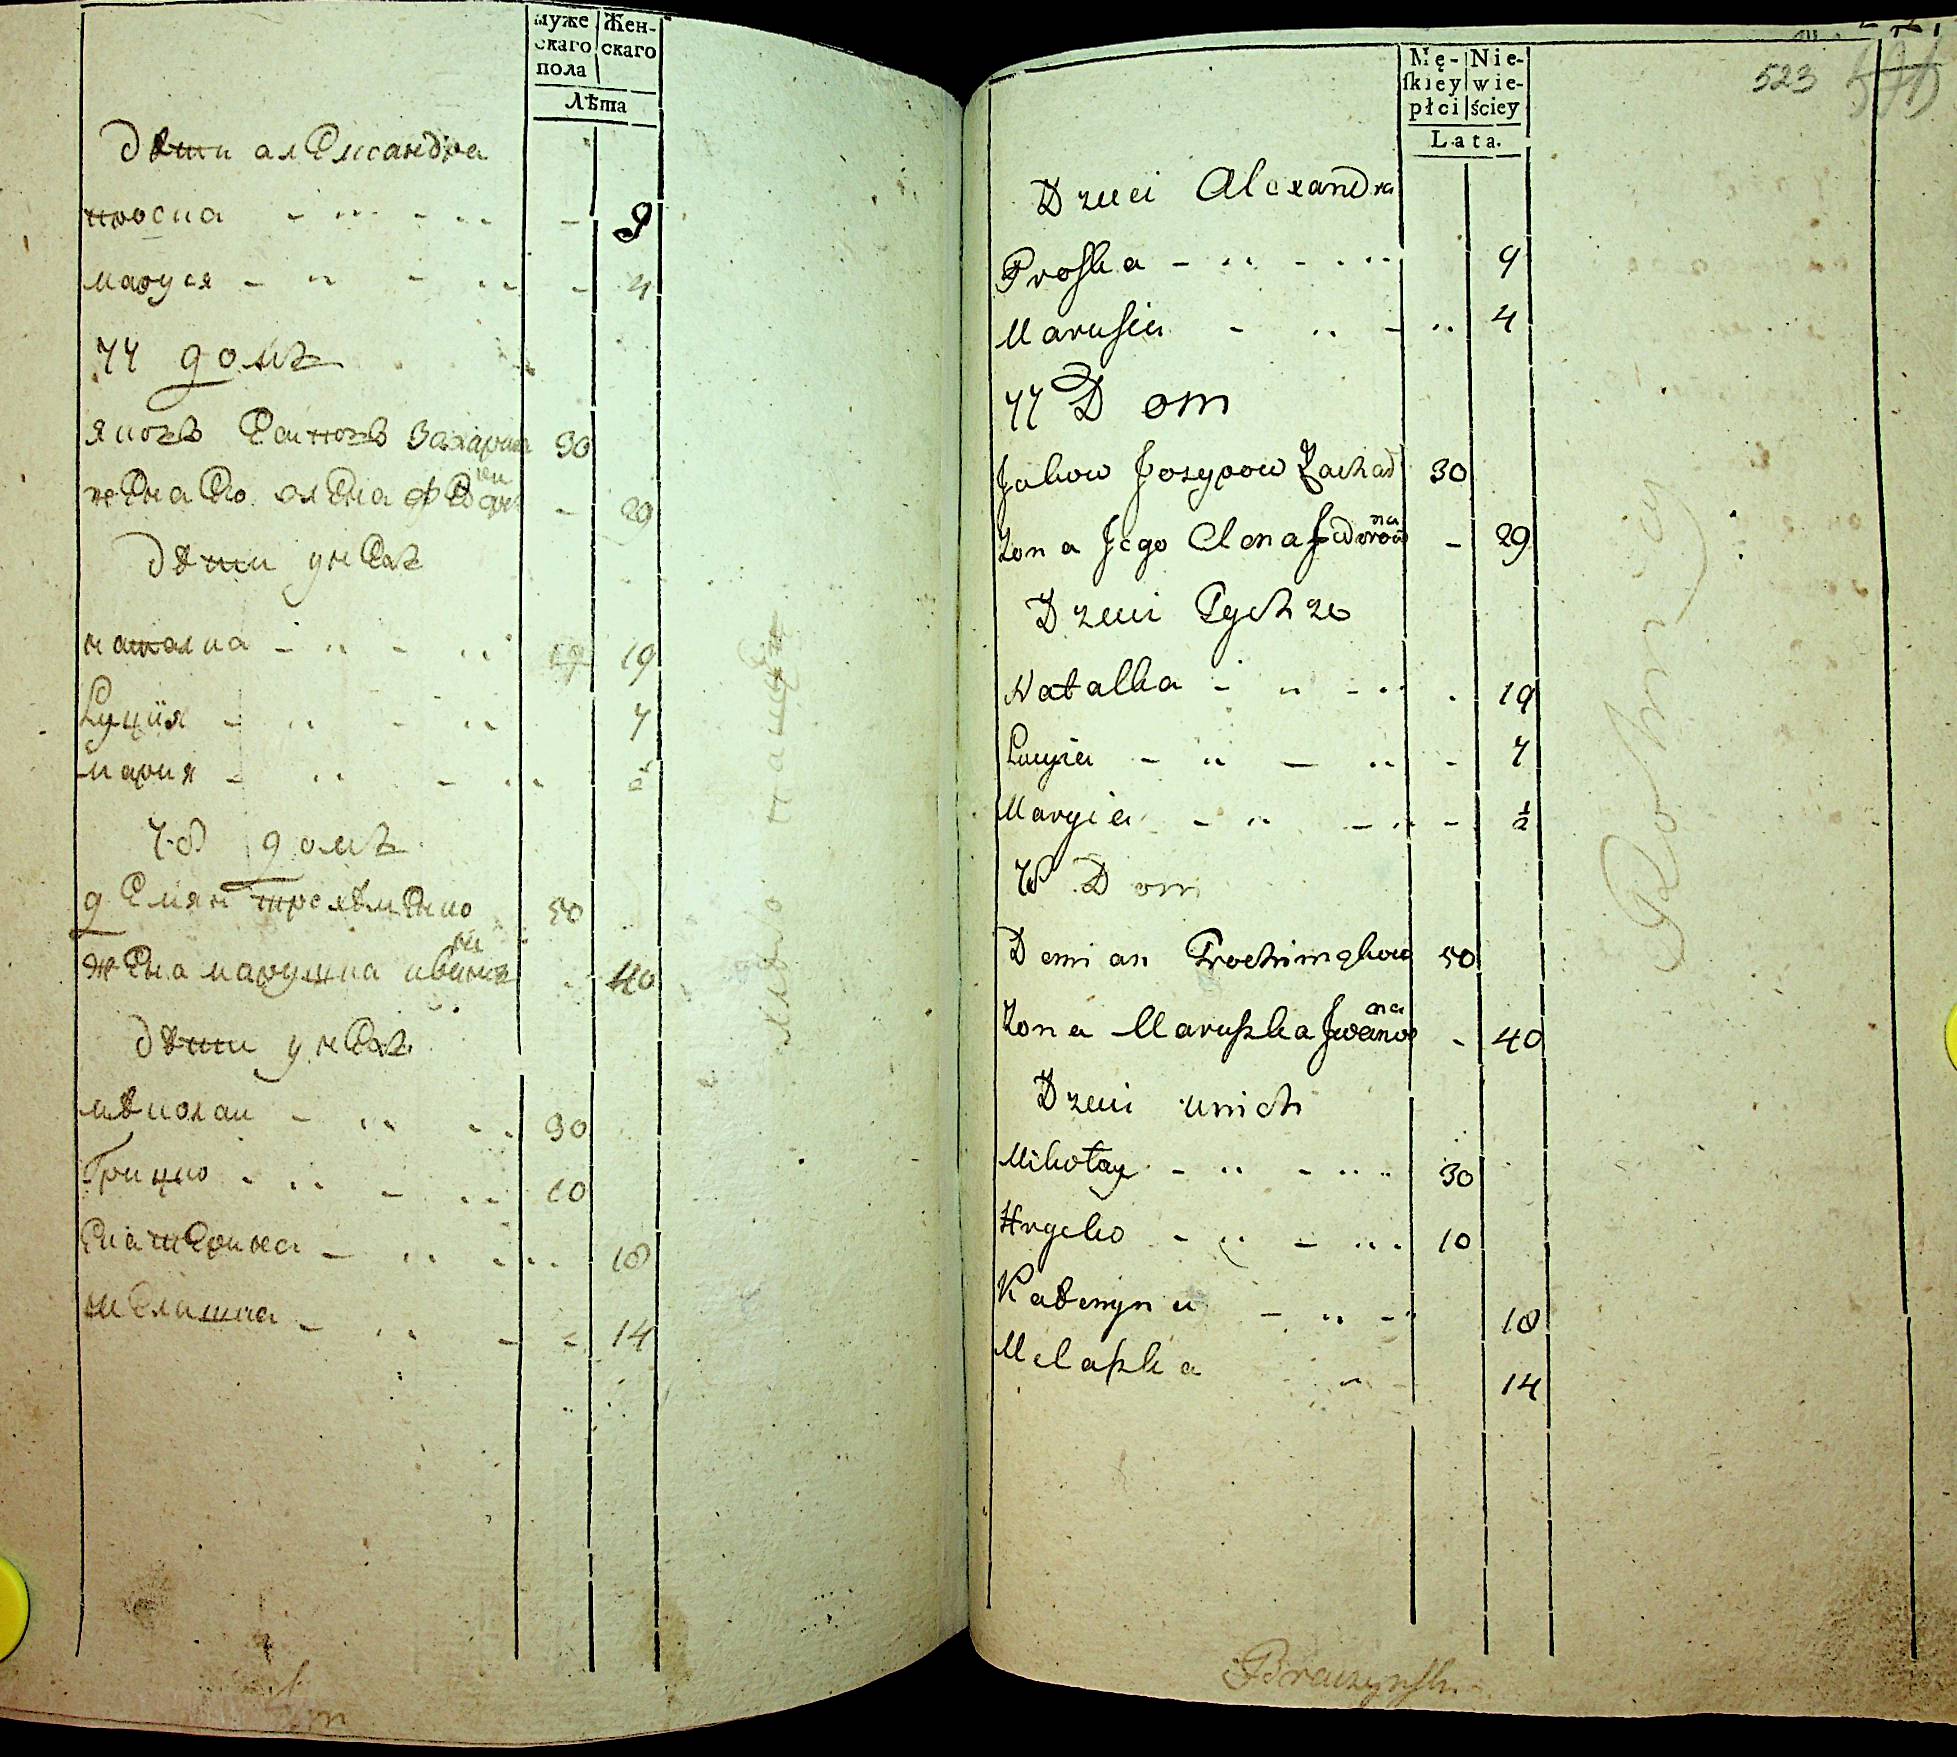 Муже Жен-
скаго скаго
пола
Лѣта
дѣти александра
проска 9
маруся 4
77 домъ
яковъ есиповъ захария 30
жена его олена федорова 29
дѣти у нехъ
наталка 19
Луция 7
мария ½
78 домъ
демян трохименко 50
жена марушка иванова 40
дѣти у нехъ
мѣколаи 30
Грицко 10
екатерина 18
мелашка 14
Mę- Nie-
ſkiey wie-
płci ściey
Lata.
523
Dzieci Alexandra
Proſka 9
Maruſia 4
77 Dom
Jakow Jozypow Zachar 30
Żona Jego Elena Fedorowna 29
Dzieci Tychze
Natalka 19
Łucyia 7
Maryia ½
78 Dom
Demian Trochimękow 50
Żona Maruſzka Jwanowna 40
Dzieci u nich
Mikołay 30
Hrycko 10
Kateryna 18
Melaſzka 14